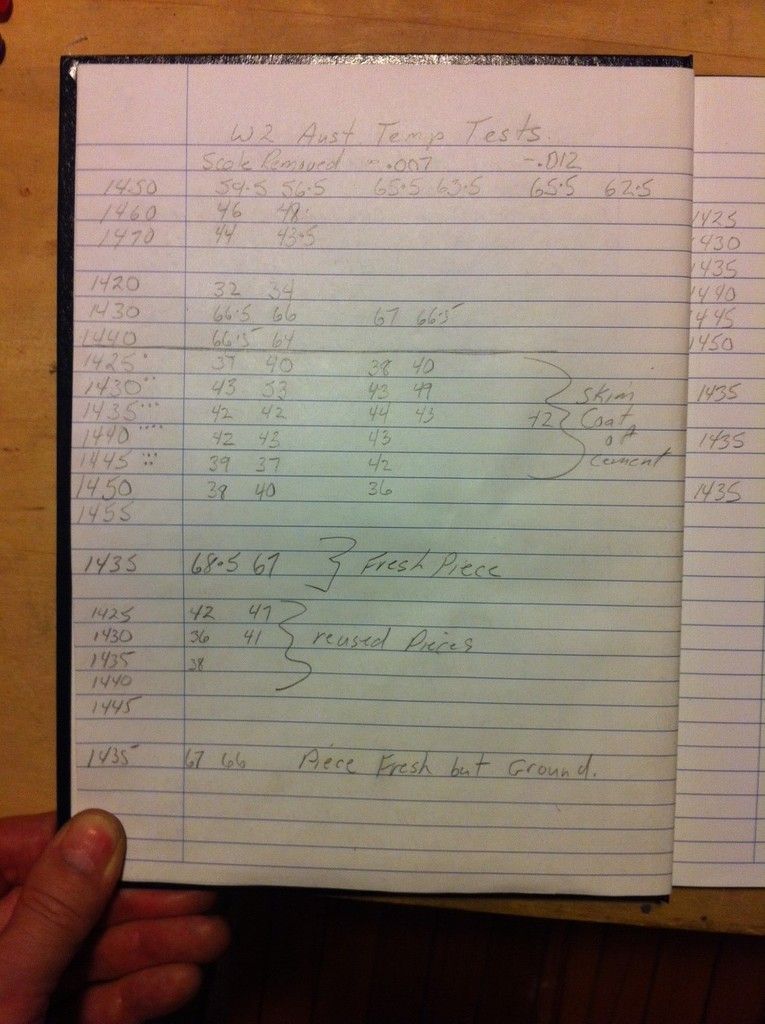 W2 Aust Temp Tests.
Scale Removed ~.007 -.012
1450 59.5 56.5 65.5 63.5 65.5 62.5
1460 46 48
1470 44 43.5
1420 32 34
1430 66.5 66 67 66.5
1440 66.5 64
1425 37 40 38 40
1430 43 53 43 49
1435 42 42 44 43 42
1440 42 43 43
1445 39 37 42
1450 38 40 36
1455
Skim
Coat
of
cement
1435 68.5 67 Fresh Piece
1425 42 47
1430 36 41 reused Pieces
1435 38
1440
1445
1435 67 66 Piece Fresh but Ground.
1425
1430
1435
1440
1445
1450
1435
1435
1435